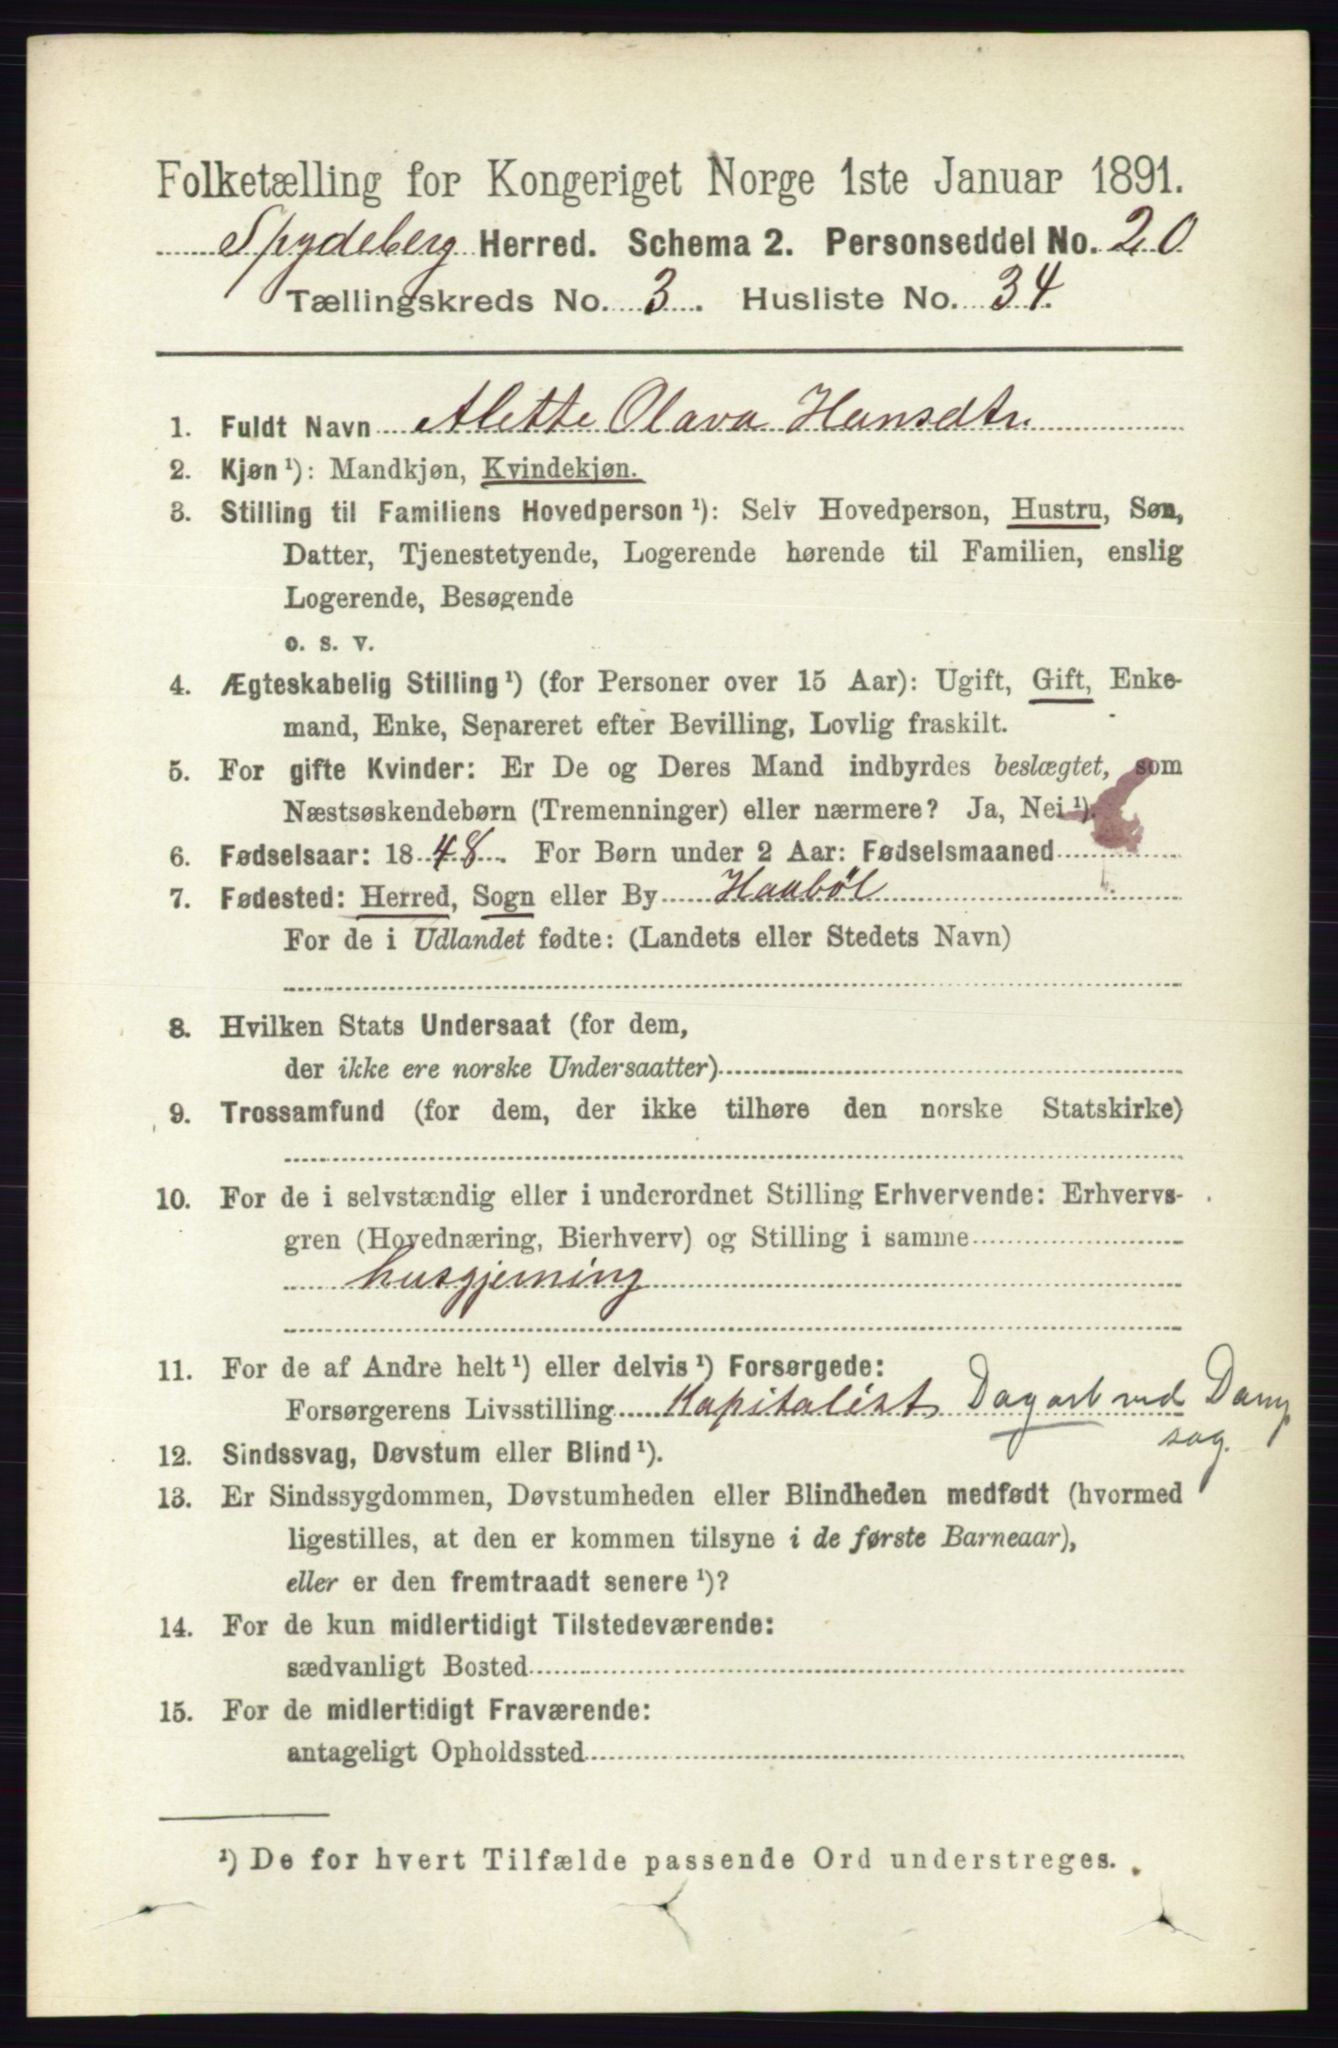 Folketælling for Kongeriget Norge 1ste Januar 1891.
Spydeberg Herred. Schema 2. Personseddel No. 20
Tællingskreds No. 3. Husliste No. 34.
1. Fuldt Navn Alette Olava Hansdtr
2. Kjøn ¹): Mandkjøn, Kvindekjøn.
3. Stilling til Familiens Hovedperson ¹): Selv Hovedperson, Hustru, Søn,
Datter, Tjenestetyende, Logerende hørende til Familien, enslig
Logerende, Besøgende
o. s. v.
4. Ægteskabelig Stilling ¹) (for Personer over 15 Aar): Ugift, Gift, Enke-
mand, Enke, Separeret efter Bevilling, Lovlig fraskilt.
5. For gifte Kvinder: Er De og Deres Mand indbyrdes beslægtet, som
Næstsøskendebørn (Tremenninger) eller nærmere? Ja, Nei ¹).
6. Fødselsaar: 1848. For Børn under 2 Aar: Fødselsmaaned
7. Fødested: Herred, Sogn eller By Haabøl
For de i Udlandet fødte: (Landets eller Stedets Navn)
8. Hvilken Stats Undersaat (for dem,
der ikke ere norske Undersaatter)
9. Trossamfund (for dem, der ikke tilhøre den norske Statskirke)
10. For de i selvstændig eller i underordnet Stilling Erhvervende: Erhvervs-
gren (Hovednæring, Bierhverv) og Stilling i samme
husgjerning
11. For de af Andre helt ¹) eller delvis ¹) Forsørgede:
Forsørgerens Livsstilling Kapitalist Dagarb ved Damp
sag.
12. Sindssvag, Døvstum eller Blind ¹).
13. Er Sindssygdommen, Døvstumheden eller Blindheden medfødt (hvormed
ligestilles, at den er kommen tilsyne i de første Barneaar),
eller er den fremtraadt senere ¹)?
14. For de kun midlertidigt Tilstedeværende:
sædvanligt Bosted
15. For de midlertidigt Fraværende:
antageligt Opholdssted
¹) De for hvert Tilfælde passende Ord understreges.